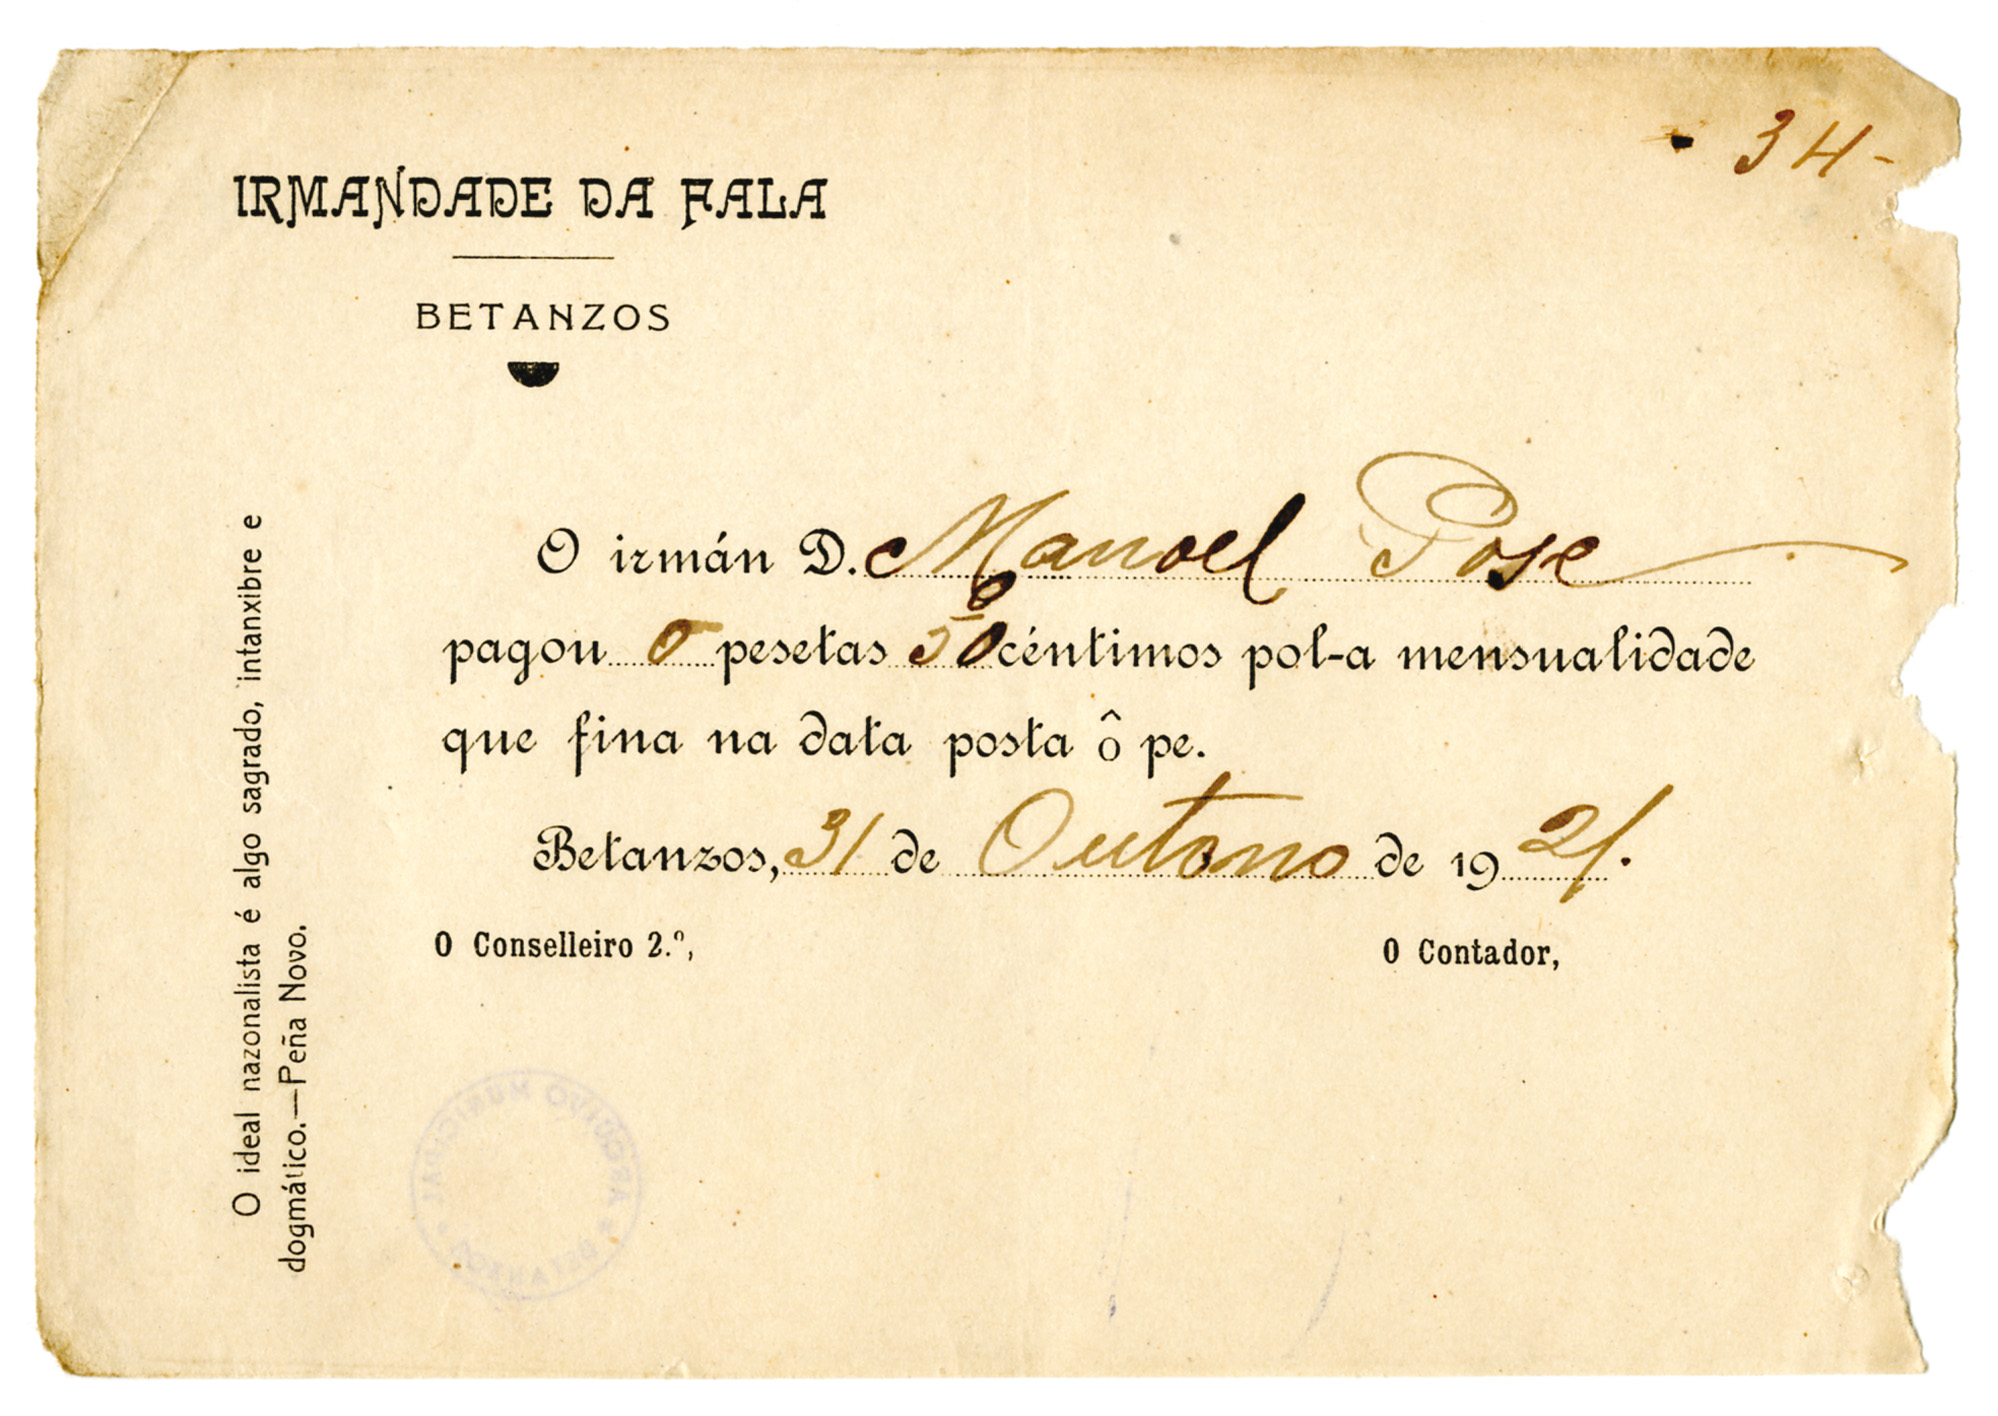 34-
IRMANDADE DA FALA
BETANZOS
O irmán D. Manoel Pose
pagou 0 pesetas 50 céntimos pol-a mensualidade
que fina na data posta ô pe.
Betanzos, 31 de Outono de 1921.
O Conselleiro 2.º,
O Contador,
O ideal nazonalista é algo sagrado, intanxibre e
dogmático.—Peña Novo.
ARQUIVO MUNICIPAL
* BETANZOS *